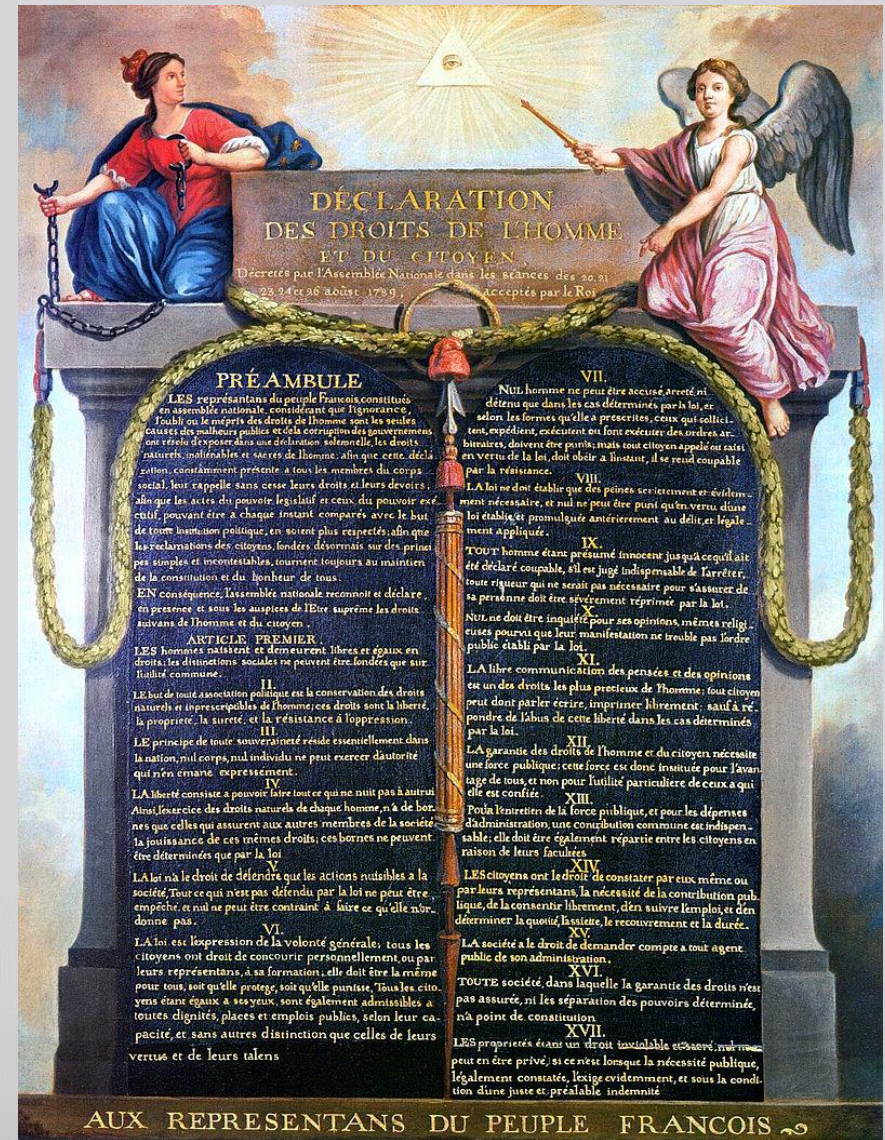 DÉCLARATION
DES DROITS DE L'HOMME
ET DU CITOYEN,
Décretés par l'Assemblée Nationale dans les séances des 20, 21
23, 24 et 26 aoûst 1789, acceptés par le Roi
PRÉAMBULE
LES représantans du peuple Francois, constitués
en assemblée nationale, considérant que l'ignorance,
l'oubli ou le mépris des droits de l'homme sont les seules
causes des malheurs publics et de la corruption des gouvernemens
ont résolu d'exposer, dans une déclaration solemnelle, les droits
naturels, inaliénables et sacrés de l'homme; afin que cette décla
ration, constamment présente a tous les membres du corps
social, leur rappelle sans cesse leurs droits et leurs devoirs;
afin que les actes du pouvoir législatif et ceux du pouvoir exé
cutif, pouvant être a chaque instant comparés avec le but
de toute institution politique, en soient plus respectés; afin que
les reclamations des citoyens, fondées désormais sur des princi
pes simples et incontestables, tournent toujours au maintien
de la constitution et du bonheur de tous.
EN conséquence, l'assemblée nationale reconnoit et déclare,
en presence et sous les auspices de l'Etre suprême les droits
suivans de l'homme et du citoyen.
ARTICLE PREMIER.
LES hommes naissent et demeurent libres et égaux en
droits; les distinctions sociales ne peuvent être fondées que sur
l'utilité commune.
II.
LE but de toute association politique est la conservation des droits
naturels et inprescriptibles de l'homme; ces droits sont la liberté,
la propriété, la sureté, et la résistance à l'oppression.
III.
LE principe de toute souveraineté réside essentiellement dans
la nation, nul corps, nul individu ne peut exercer d'autorité
qui n'en émane expressement.
IV.
LA liberté consiste a pouvoir faire tout ce qui ne nuit pas à autrui
Ainsi, l'exercice des droits naturels de chaque homme, n'a de bor-
nes que celles qui assurent aux autres membres de la société
la jouissance de ces mêmes droits; ces bornes ne peuvent
être déterminées que par la loi
V.
LA loi n'a le droit de défendre que les actions nuisibles a la
société. Tout ce qui n'est pas défendu par la loi ne peut être
empêché, et nul ne peut être contraint à faire ce qu'elle n'or-
donne pas.
VI.
LA loi est l'expression de la volonté générale; tous les
citoyens ont droit de concourir personnellement, ou par
leurs représentans, à sa formation; elle doit être la même
pour tous, soit qu'elle protege, soit qu'elle punisse, Tous les cito-
yens étant égaux à ses yeux, sont également admissibles a
toutes dignités, places et emplois publics, selon leur ca-
pacité, et sans autres distinction que celles de leurs
vertus et de leurs talens
VII.
NUL homme ne peut être accusé, arreté, ni
détenu que dans les cas déterminés par la loi, et
selon les formes qu'elle a prescrites, ceux qui sollici-
tent, expédient, exécutent ou font exécuter des ordres ar-
bitraires, doivent être punis; mais tout citoyen appelé ou saisi
en vertu de la loi, doit obéir a l'instant, il se rend coupable
par la résistance.
VIII.
LA loi ne doit établir que des peines strictement et évidem-
ment nécessaire, et nul ne peut être puni qu'en vertu d'une
loi établie, et promulguée antérierement au délit, et légale-
ment appliquée.
IX.
TOUT homme étant présumé innocent jusqu'a ce qu'il ait
été déclaré coupable, s'il est jugé indispensable de l'arrêter,
toute rigueur qui ne serait pas nécessaire pour s'assurer de
sa personne doit être sévèrement réprimée par la loi.
X.
NUL ne doit être inquiété pour ses opinions, mêmes religi-
euses pourvu que leur manifestation ne trouble pas l'ordre
public établi par la loi.
XI.
LA libre communication des pensées et des opinions
est un des droits les plus precieux de l'homme; tout citoyen
peut dont parler écrire, imprimer librement; sauf à ré-
pondre de l'abus de cette liberté dans les cas déterminés
par la loi.
XII.
LA garantie des droits de l'homme et du citoyen nécessite
une force publique; cette force est donc instituée pour l'avan-
tage de tous, et non pour l'utilité particuliere de ceux a qui
elle est confiée.
XIII.
POUR l'entretien de la force publique, et pour les dépenses
d'administration, une contribution commune est indispen-
sable; elle doit être également répartie entre les citoyens en
raison de leurs facultées
XIV.
LES citoyens ont le droit de constater par eux même ou
par leurs représentans, la nécessité de la contribution pub-
lique, de la consentir librement, d'en suivre l'emploi, et d'en
déterminer la quotité, l'assiette, le recouvrement et la durée.
XV.
LA société a le droit de demander compte a tout agent
public de son administration.
XVI.
TOUTE société, dans laquelle la garantie des droits n'est
pas assurée, ni les séparation des pouvoirs déterminée,
n'a point de constitution
XVII.
LES propriétés étant un droit inviolable et sacré, nul ne
peut en être privé, si ce n'est lorsque la nécessité publique,
légalement constatée, l'exige evidemment, et sous la condi-
tion d'une juste et préalable indemnité
AUX REPRESENTANS DU PEUPLE FRANCOIS